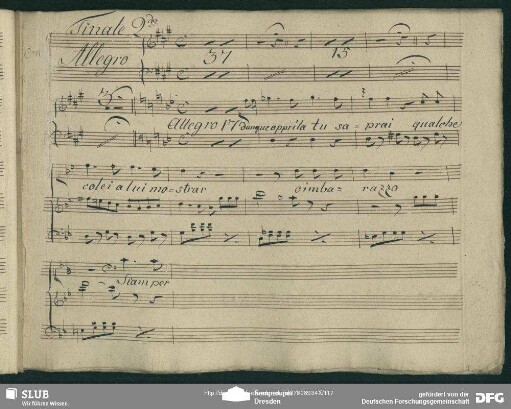 Finale 2do
Allegro 37 15
Allegro 17 dunque aprila tu sa= prai qualche
colei a lui mo=strar oimba= razzo
Siam per
SLUB
Wir führen Wissen.
Dresden
gefördert von der
Deutschen Forschungsgemeinschaft
DFG